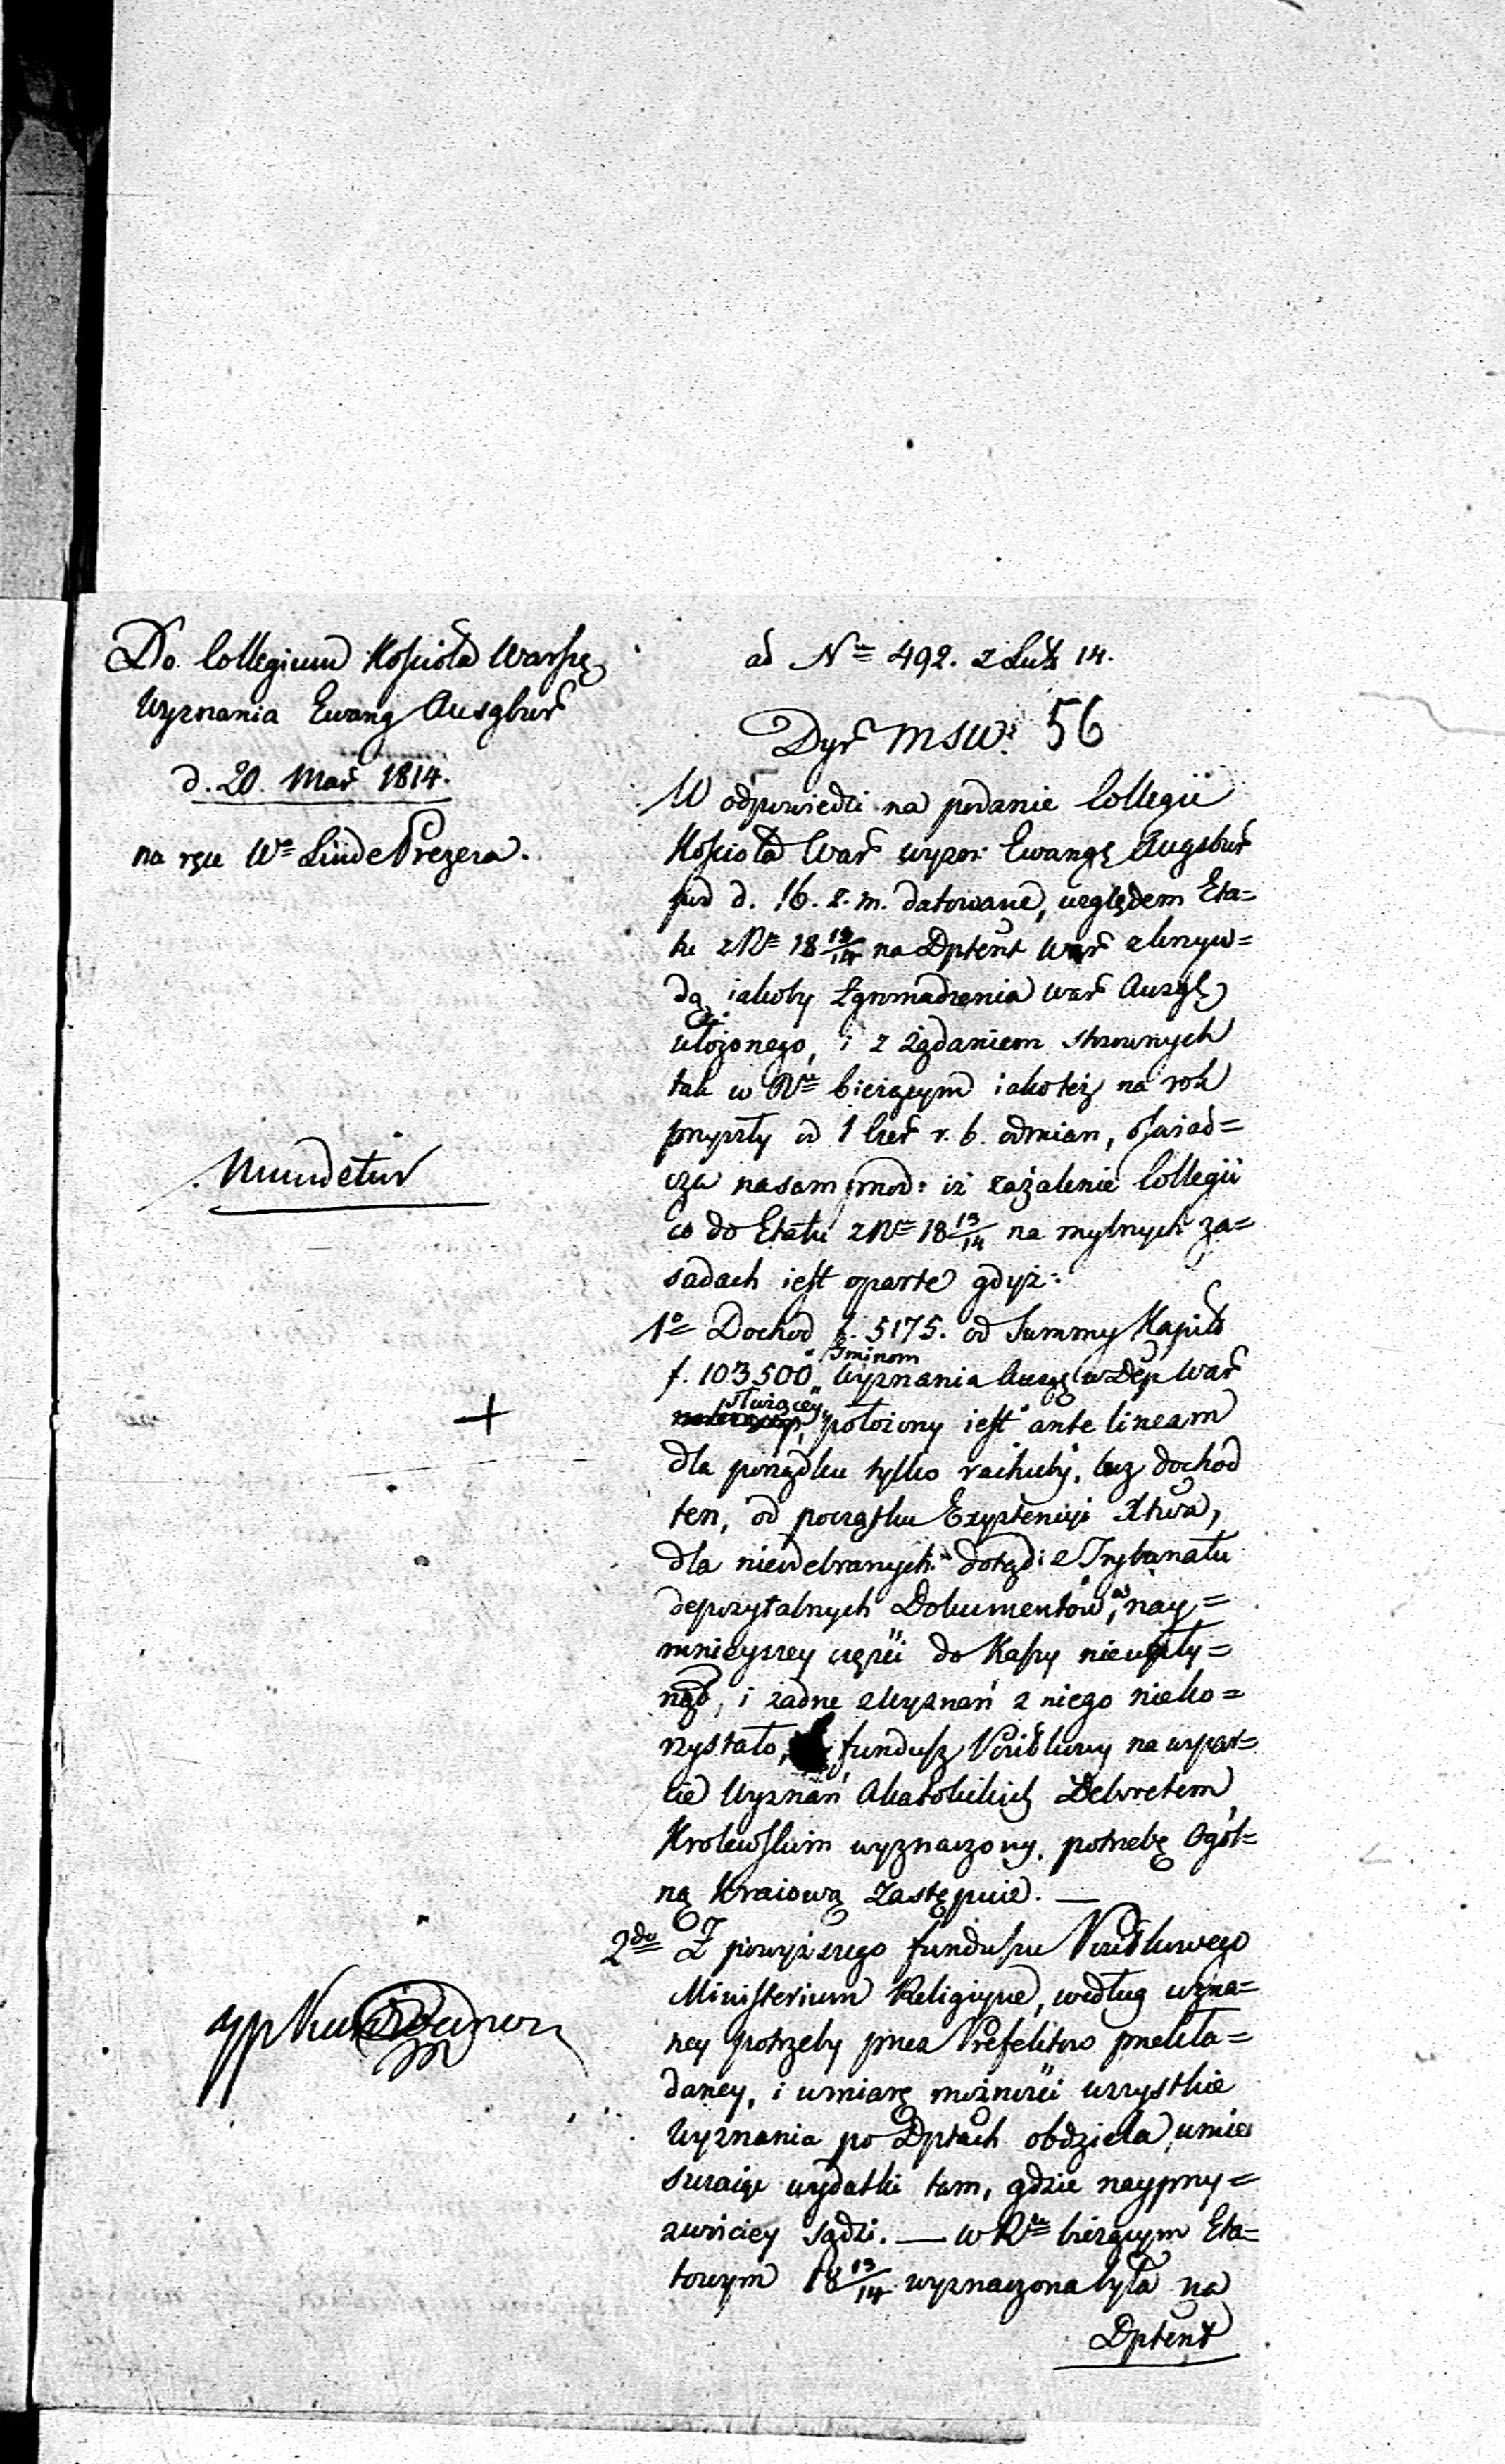 Do Collegium Kościoła Warszę
Wyznania Ewang Ausgbur
d. 20. Mar 1814.
na ręce Wo Linde Prezesa.
Mundetur
ad No 492. z Lut 14.
Dyr MSW: 56
W odpowiedzi na podanie Collegii
Kościoła War wyzn: Ewangę Augsbur
pod d. 16. z. m. datowane, względem Eta=
tu z Ru 18 13/14 na Dptent War z krzyw=
dą iakoby Zgromadzenia War Auszg
ułożonego, i z żądaniem stosownych
tak w Ru bieżącym iakoteż na rok
przyszły od 1 Czer r. b. odmian, oświad=
cza nasam przod: iż zażalenie Collegii
co do Etatu z Ru 18 13/14 na mylnych za=
sadach iest oparte gdyż:
1o Dochod f. 5175. od Summy Kapit
f. 103500 Gminom Wyznania Auszg w Dep War
służącey, położony iest ante lineam
dla porządku tylko rachuby, lecz dochod
ten, od początku Exystencyi Xtwa,
dla nieodebranych dotąd z Trybunału
depozytalnych Dokumentow, w nay=
mnieyszey części do Kassy niewpły=
nął, i żadne z Wyznań z niego nieko=
rzystało, fundusz Posiłkowy na wspar=
cie Wyznań Akatolickich Dekretem
Krolewskim wyznaczony, potrzebę Ogól=
ną Kraiową Zastępuie. —
2do Z powyższego funduszu Posiłkowego
Ministerium Religiyne, według uzna=
ney potrzeby przez Prefektow przekła=
daney, i w miarę możności wszystkie
Wyznania po Dptach obdziela, umie
szczaiąc wydatki tam, gdzie nayprzy=
zwoiciey sądzi. — w Ru bieżącym Eta=
towym 18 13/14 wyznaczona była na
Dptent